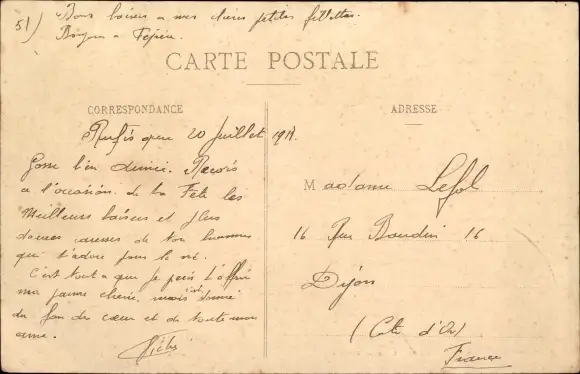 51) Bons baisers a mes chères petites fillettes.
CARTE POSTALE
CORRESPONDANCE
ADRESSE
Rufisque 20 Juillet 191
bien aimée. Reçois
a l'occasion de ta Fête les
Meilleurs baisers et plus
douces caresses de ton
qui t'adore pour la vie.
C'est tout ce que je puis t'offrir
ma chérie, mais
du fon du cœur et de toute mon
ame.
Madame Lefol
16 Rue Baudin 16
Dijon
(Cote d'Or)
France